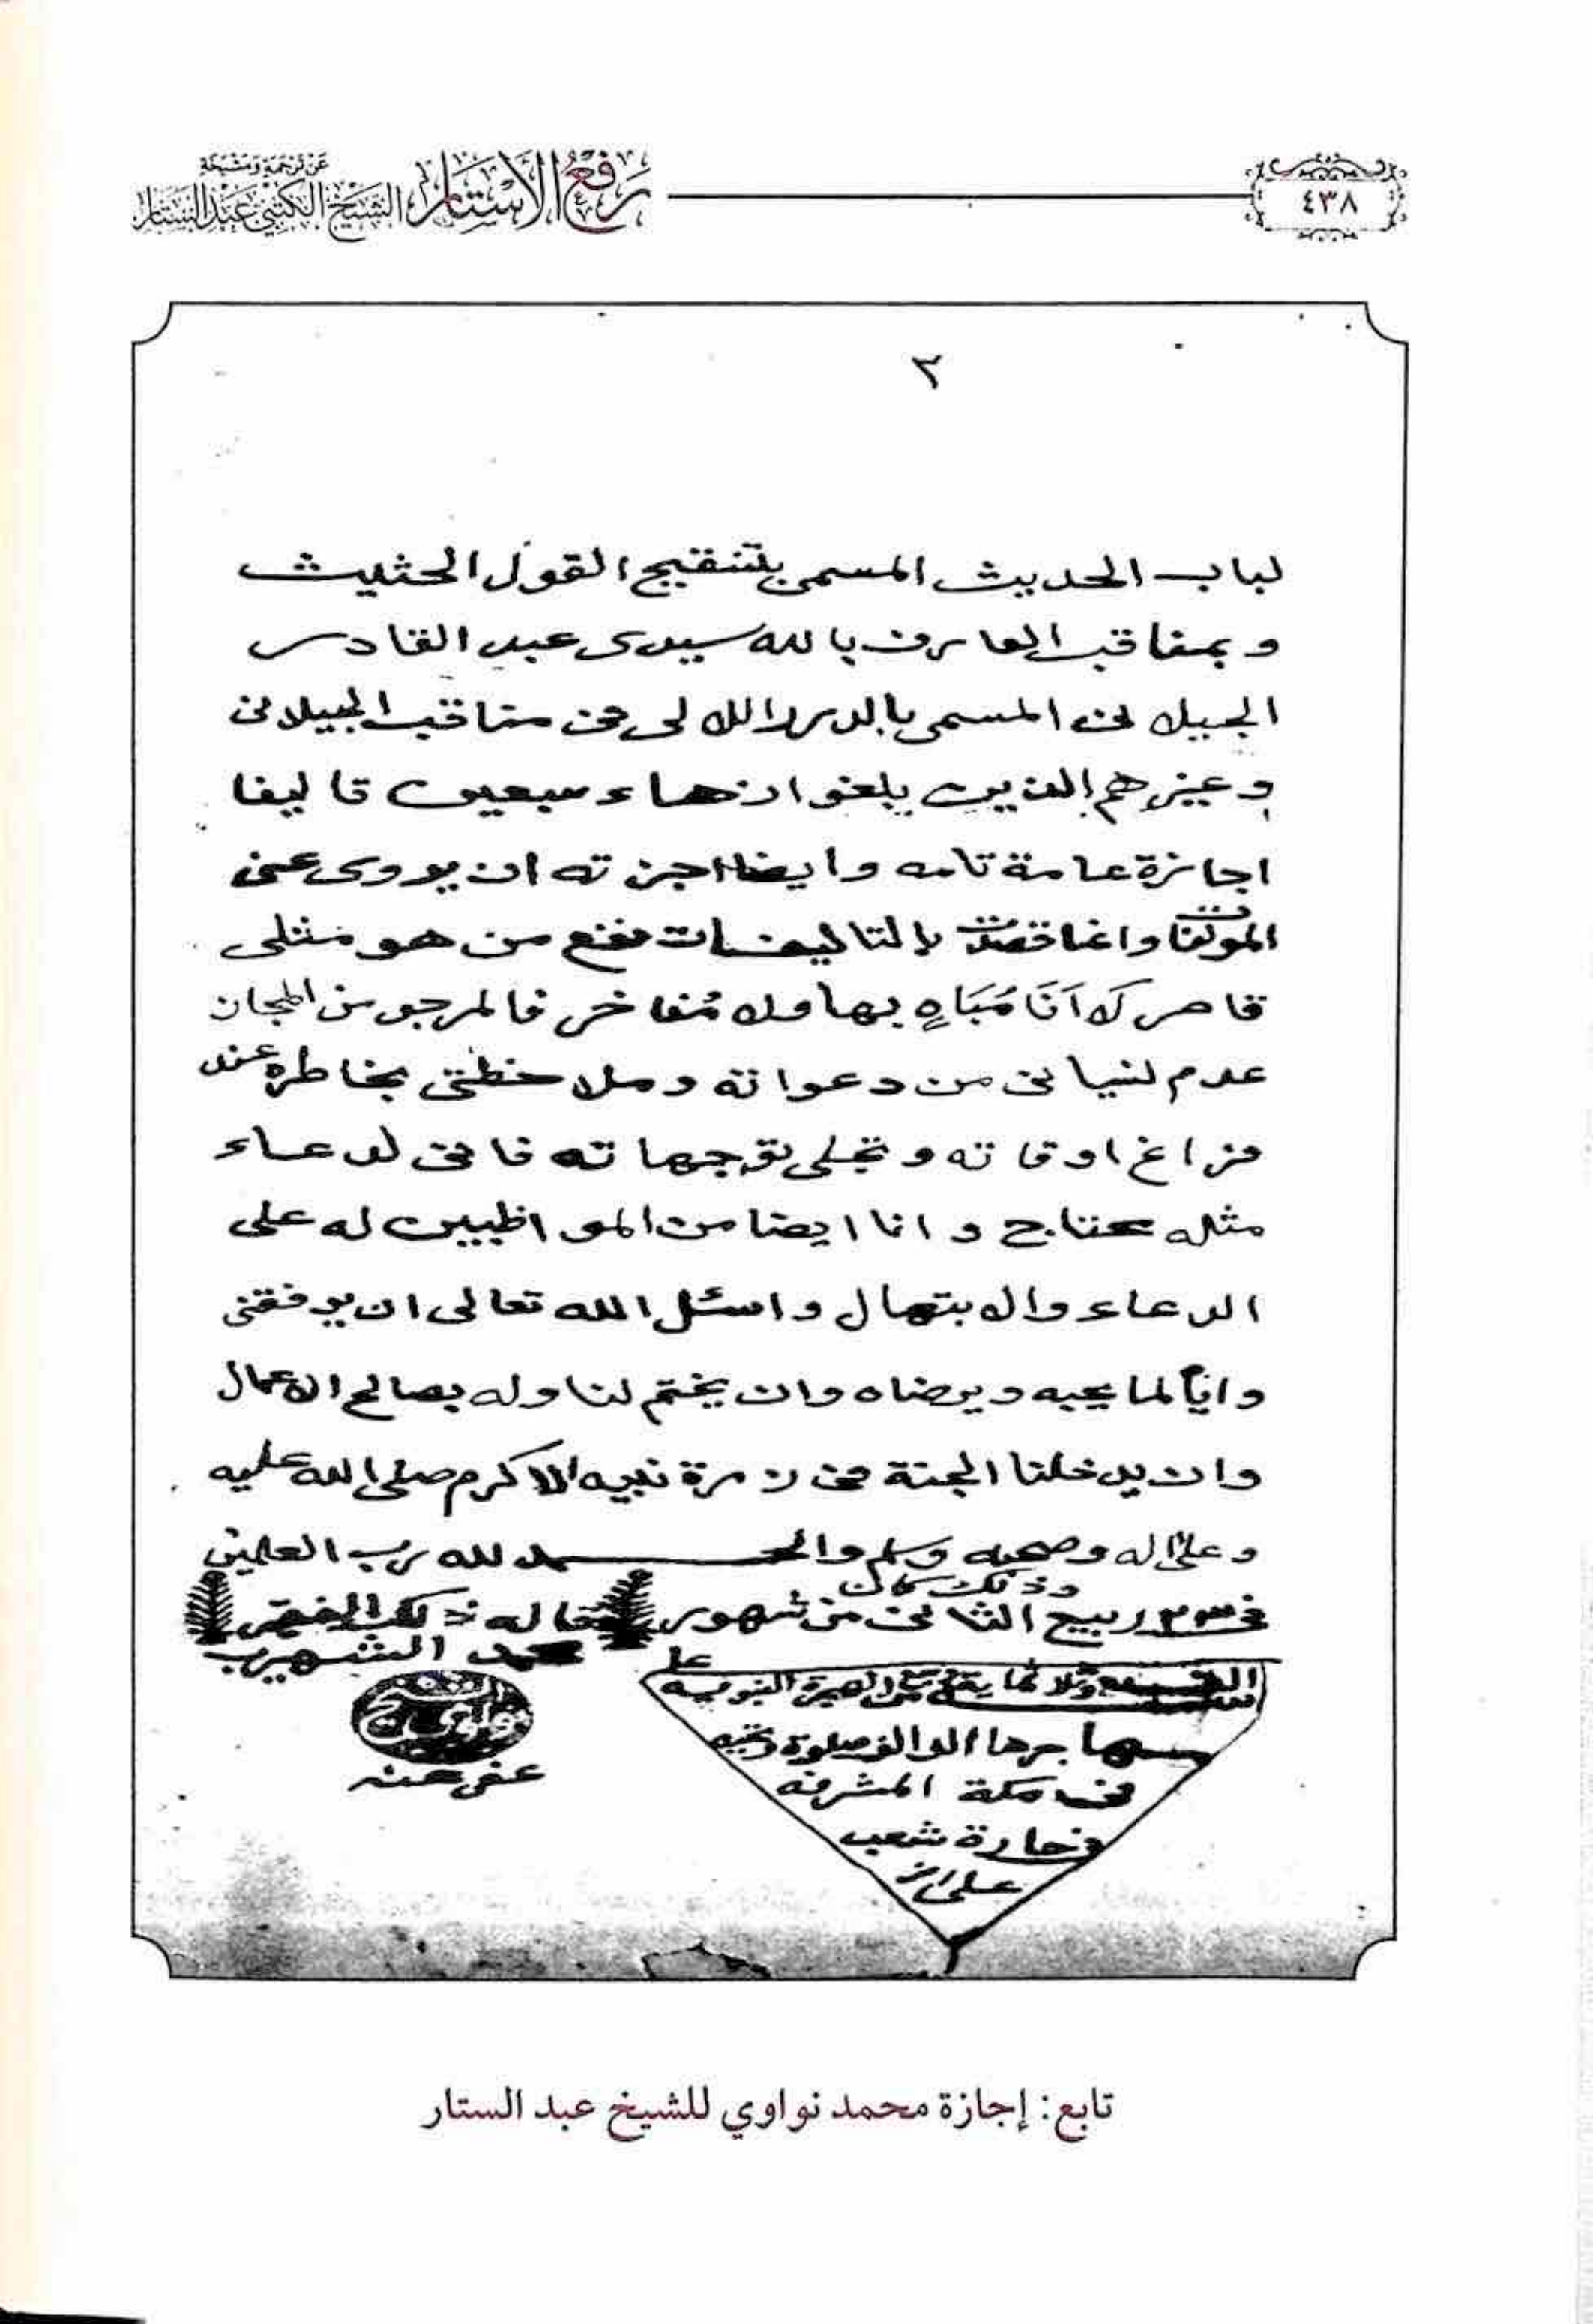 ٤٣٨
رفع الأستار عن ترجمة ومشيخة الشيخ الكتبي عبد الستار
٣
لباب الحديث المسمى بتنقيح القول الحثيث
وبمناقب العارف بالله سيدى عبد القادر
الجيلانى المسمى بالدرر اللالى فى مناقب الجيلانى
وغيرهم الذين بلغوا زهاء سبعين تاليفا
اجازة عامة تامه وايضا اجزته ان يروى عنى
المولفات وانما قصدت بالتاليفات نفع من هو مثلى
قاصر لَا اَنَا مُبَاهٍ بها ولا مُفاخر فالمرجو من المجاز
عدم نسيانى من دعواته وملاحظتى بخاطره عند
فراغ اوقاته وتجلى توجهاته فانى لدعاء
مثله محتاج وانا ايضا من المواظبين له على
الدعاء والابتهال واسئل الله تعالى ان يوفقنى
واياه لما يحبه ويرضاه وان يختم لنا وله بصالح الاعمال
وان يدخلنا الجنة فى زمرة نبيه الاكرم صلى الله عليه
وعلى اله وصحبه وسلم والحمد لله رب العلمين
وذلك كان
فى ٢٣ ربيع الثانى من شهور
قاله ذلك الفقير
محمد الشهير
نواوي
عفى عنه
على
الهجرة النبويه
مهاجرها الف الف صلوة وتحيه
فى مكة المشرفه
فى حارة شعب
على
تابع: إجازة محمد نواوي للشيخ عبد الستار